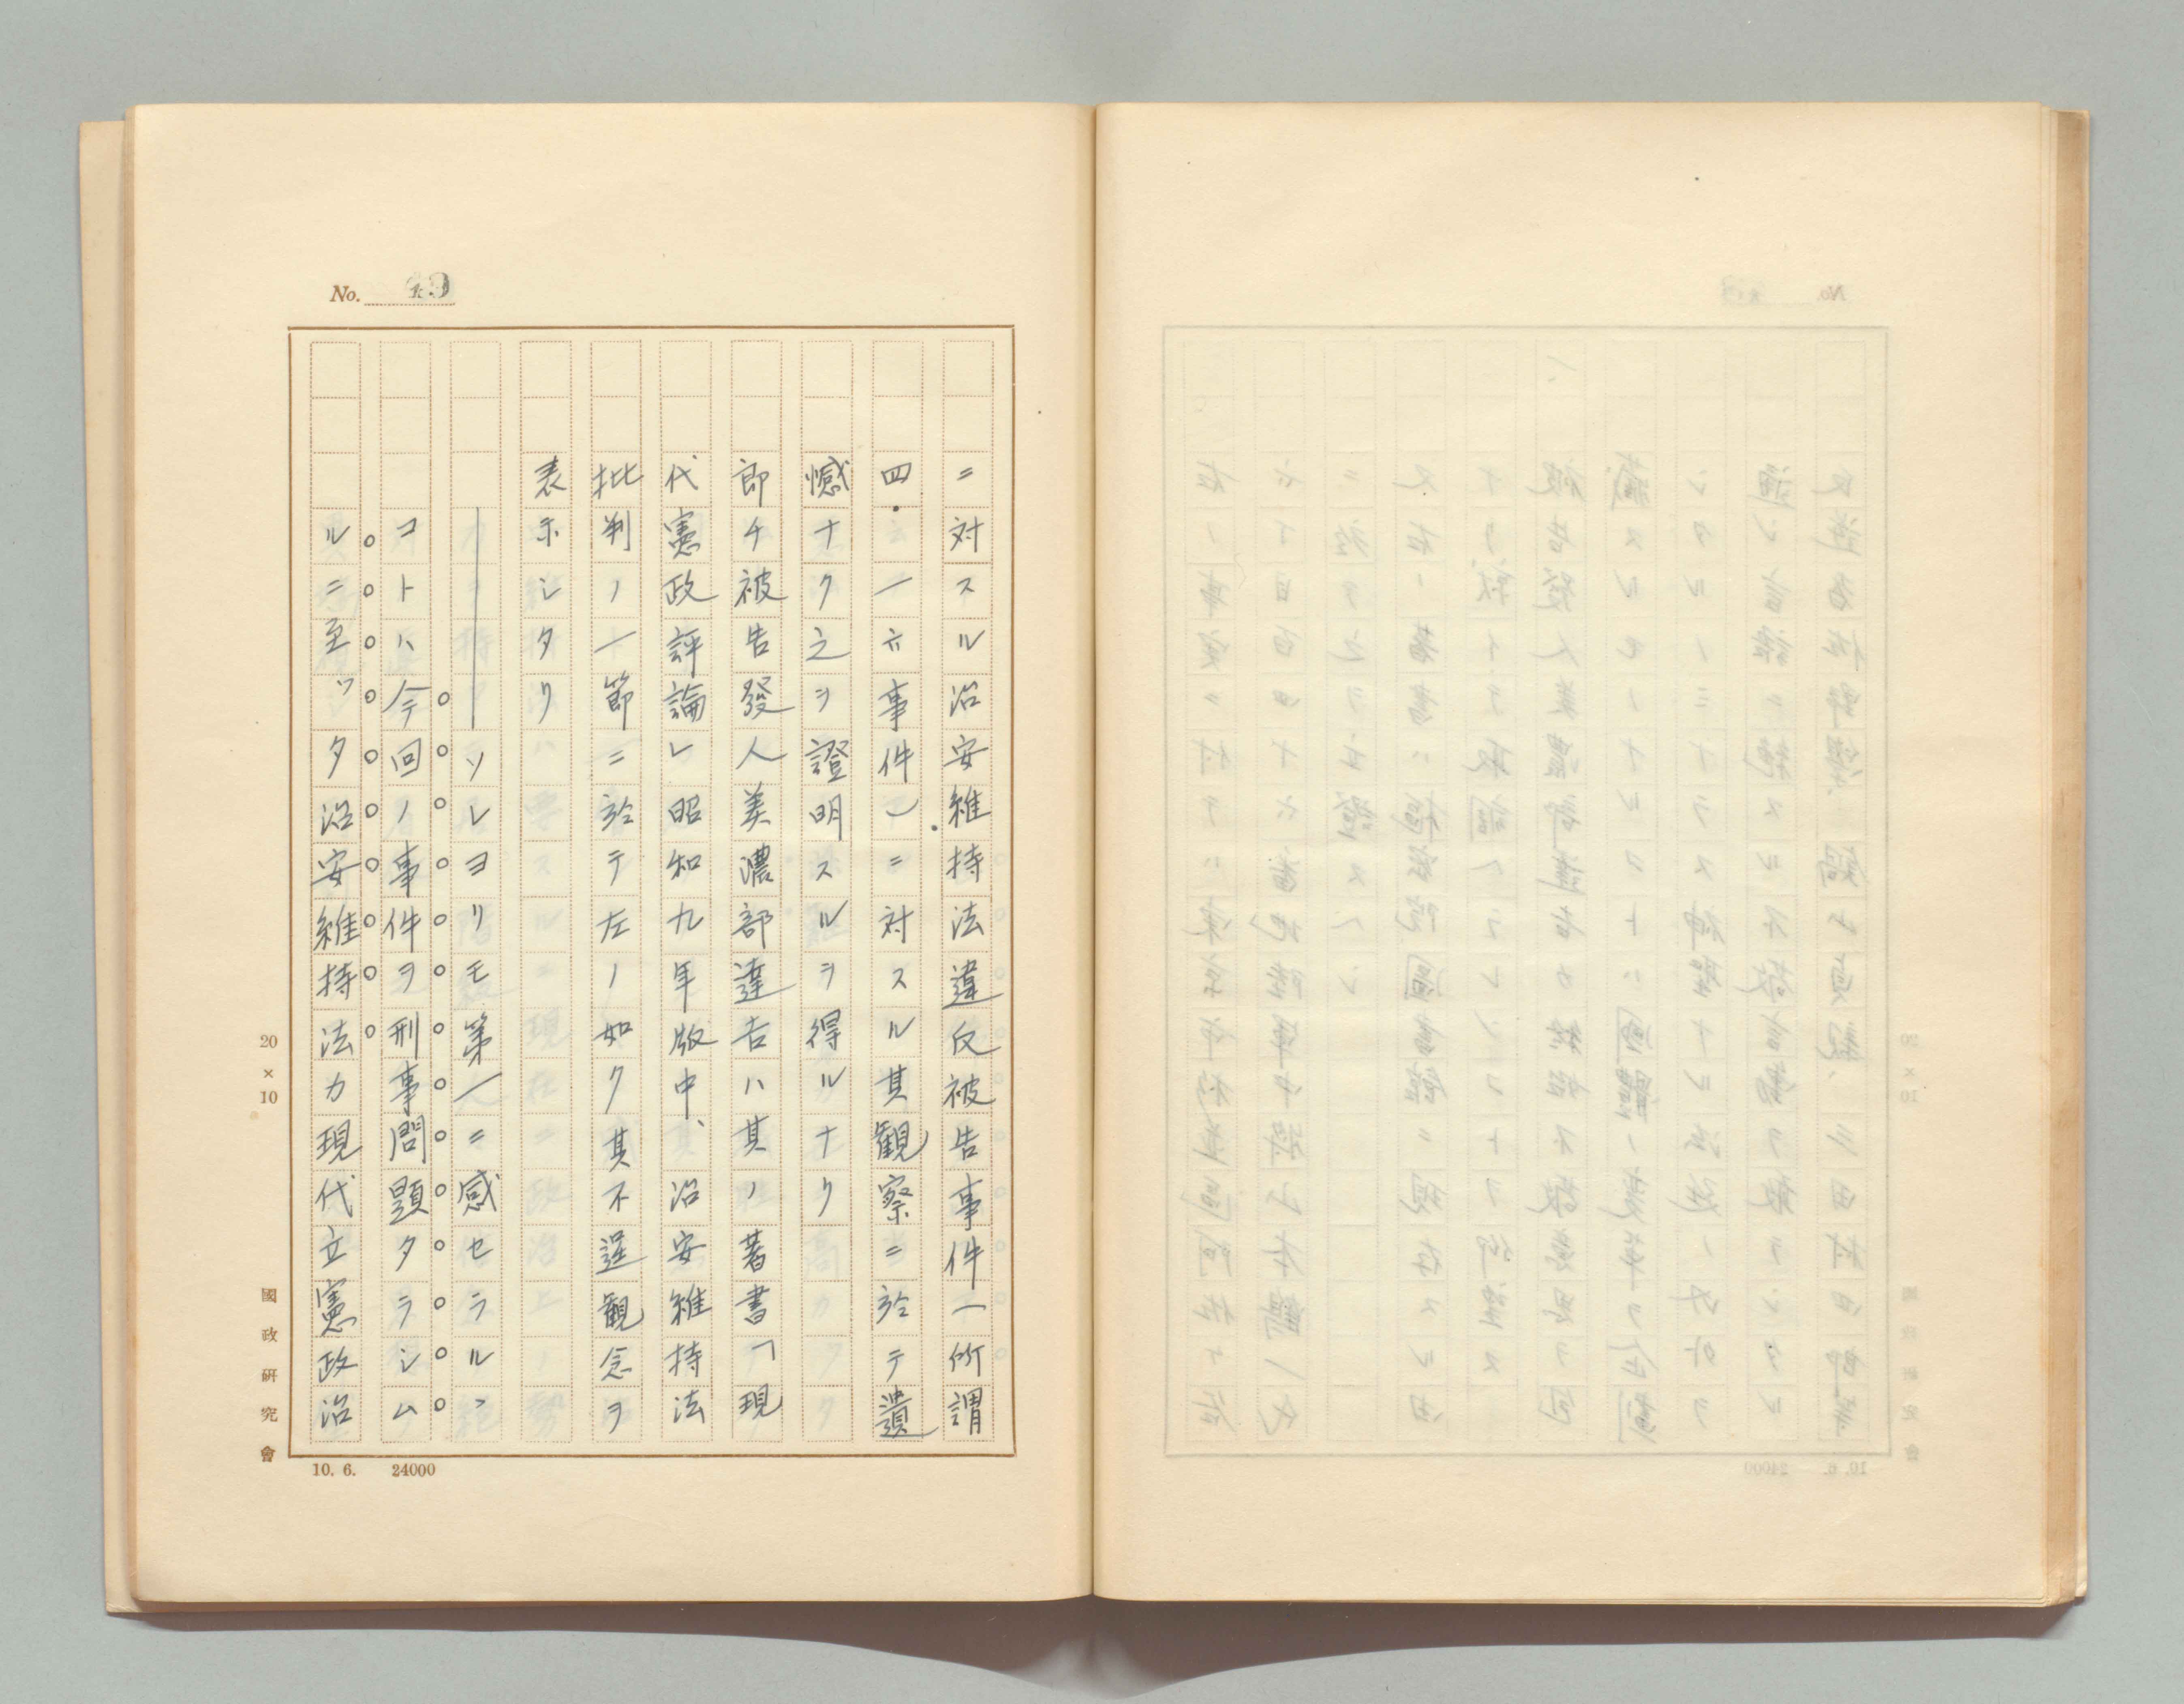 No. 49
ニ対スル治安維持法違反被告事件(所謂
四・一六事件)ニ対スル其観察ニ於テ遺
憾ナク之ヲ證明スルヲ得ルナリ
即チ被告發人美濃部達吉ハ其ノ著書「現
代憲政評論」昭和九年版中、治安維持法
批判ノ一節ニ於テ左ノ如ク其不逞観念ヲ
表示シタリ
――ソレヨリモ第一ニ感セラルヽ
コトハ今回ノ事件ヲ刑事問題タラシム
ルニ至ツタ治安維持法カ現代立憲政治
20×10
國政研究會
10. 6. 24000